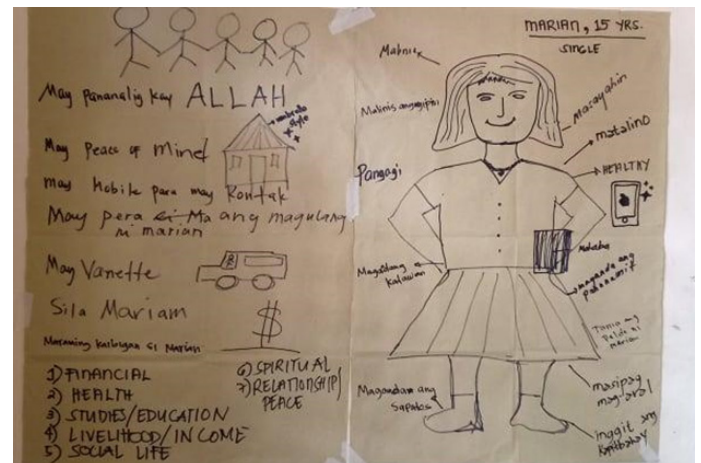 May Pananalig kay ALLAH
May Peace of Mind
may Mobile para may Kontak
May pera si Ma ang magulang
ni marian
May Vanette
Sila Mariam
$
Maraming kaibigan si Marian
1) FINANCIAL
2) HEALTH
3) STUDIES/EDUCATION
4) LIVELIHOOD/INCOME
5) SOCIAL LIFE
6) SPIRITUAL
7) RELATIONSHIP/
PEACE
MARIAN, 15 YRS.
SINGLE
Makinis
Malinis ang ngipin
Pangagi
Magandang
Magandam ang
Sapatos
Masayahin
matalino
HEALTHY
maganda ang
Tania ang
Palda ni
marian
masipag
mag-aral
inggit ang
kapitbahay